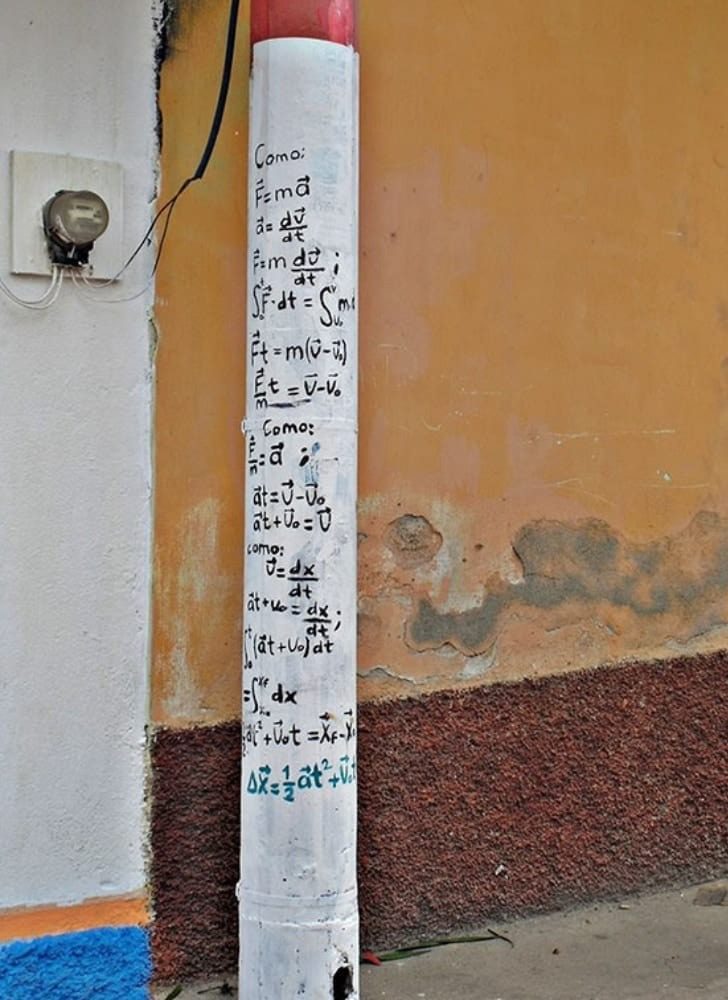 Como:
F⃗=ma⃗
a⃗=dv⃗/dt
F⃗=m dv⃗/dt ;
∫₀ᵗF⃗·dt = ∫ᵥ₀ᵛ m
F⃗t = m(v⃗-v⃗₀)
F⃗/m t = v⃗-v⃗₀
Como:
F⃗/m = a⃗ ;
a⃗t = v⃗-v⃗₀
a⃗t+v⃗₀ = v⃗
como:
v⃗=dx/dt
a⃗t+v₀ = dx/dt;
∫₀ᵗ(a⃗t+v₀)dt
=∫ₓ₀ˣᶠ dx
½a⃗t²+v⃗₀t = x⃗_F-x⃗₀
Δx⃗=½a⃗t²+v⃗₀t